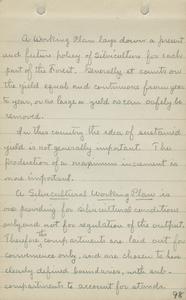 A Working Plan lays down a present
and future policy of Silviculture for each
part of the Forest. Generally it counts on
the yield equal and continuous from year
to year, or as large a yield as can safely be
removed.
In this country the idea of sustained
yield is not generally important. The
production of a maximum increment is
more important.
A Silvicultural Working Plan is
one providing for silvicultural conditions
only and not for regulation of the output.
Therefore the compartments are laid out for
convenience only, and are chosen to have
clearly defined boundaries, with sub-
compartments to account for stands.
98